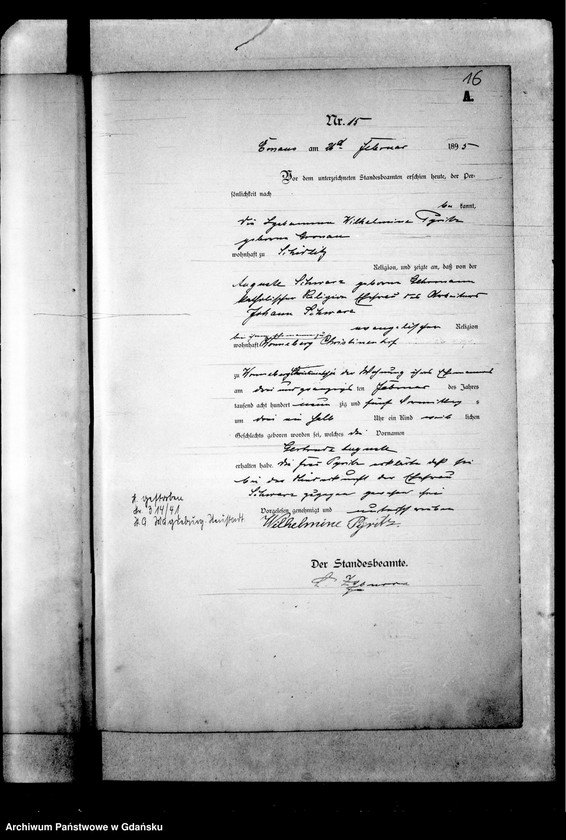 16
A.
Nr. 15
Emaus am 26ten Februar 1895
Vor dem unterzeichneten Standesbeamten erschien heute, der Per-
sönlichkeit nach
be kannt,
die Hebamme Wilhelmine Pyritz
geborene Gronau
wohnhaft zu Schidlitz
Religion, und zeigte an, daß von der
Auguste Schwarz geborene
katholischer Religion Ehefrau des Arbeiters
Johann Schwarz
evangelischer Religion
bei ihrem Ehemanne zu
wohnhaft Wonneberg Christinenhof
zu Wonneberg Christinenhof in der Wohnung ihres Ehemannes
am drei und zwanzig ten Februar des Jahres
tausend acht hundert neun zig und fünf Vormittag s
um drei ein halb Uhr ein Kind weib lichen
Geschlechts geboren worden sei, welches die Vornamen
Gertrude Auguste
erhalten habe. Die Frau Pyritz erklärte daß sie
bei der Niederkunft der Ehefrau
Schwarz zugegen gewesen sei
Vorgelesen, genehmigt und unterschrieben
Wilhelmine Pyritz.
Der Standesbeamte.
gestorben
Nr. 314/41
St. A. Magdeburg-Neustadt
Archiwum Państwowe w Gdańsku